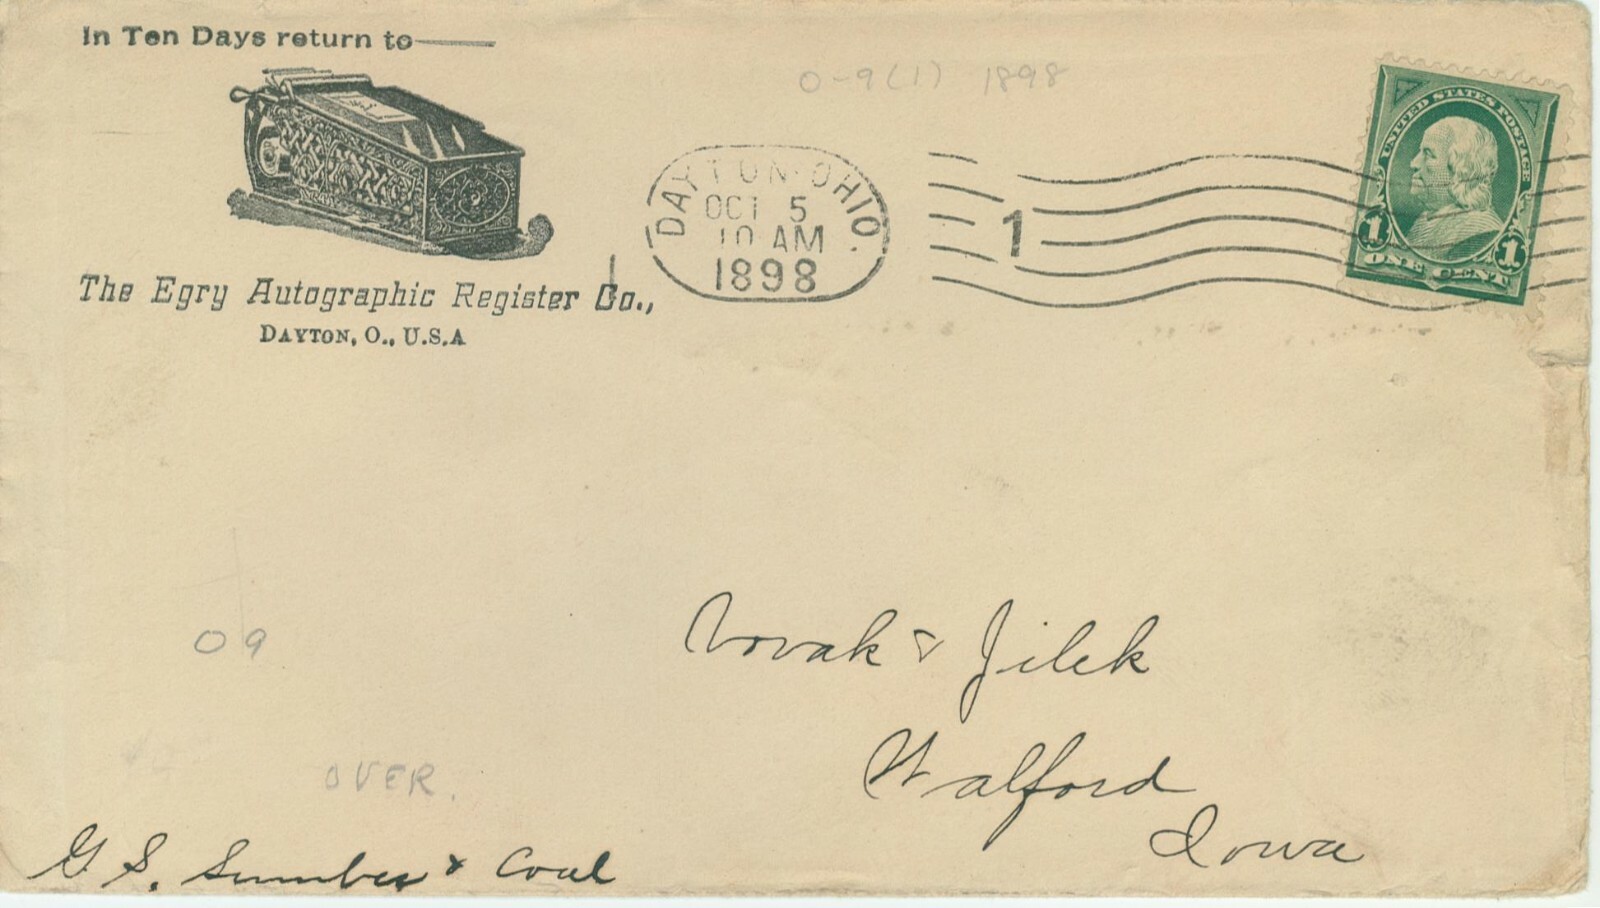 In Ten Days return to
O-9(1) 1898
The Egry Autographic Register Co.,
DAYTON, O., U.S.A
DAYTON·OHIO.
OCT 5
10 AM
1898
1
UNITED STATES POSTAGE
1 ONE CENT 1
Novak & Jilek
Walford
Iowa
09
OVER.
G. S. Lumber & Coal